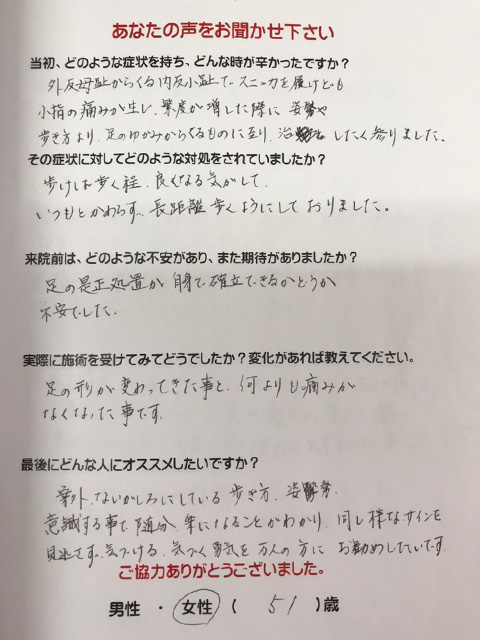 あなたの声をお聞かせ下さい
当初、どのような症状を持ち、どんな時が辛かったですか?
外反母趾からくる内反小趾で、スニーカを履けども
小指の痛みが生じ、頻度が増した際に 姿勢や
歩き方より、足のゆがみからくるものに至り、治したく参りました。
その症状に対してどのような対処をされていましたか?
歩けば歩く程、良くなる気がして、
いつもとかわらず、長距離歩くようにしておりました。
来院前は、どのような不安があり、また期待がありましたか?
足の是正処置が 自身で確立できるかどうか
不安でした。
実際に施術を受けてみてどうでしたか?変化があれば教えてください。
足の形が変わってきた事と、何よりも痛みが
なくなった事です。
最後にどんな人にオススメしたいですか?
案外、ないがしろにしている 歩き方、姿勢、
意識する事で 随分 楽になることがわかり、同じ様なサインを
見逃さず、気づける、気づく勇気を 万人の方に お勧めしたいです。
ご協力ありがとうございました。
男性 ・ 女性 ( 51 )歳